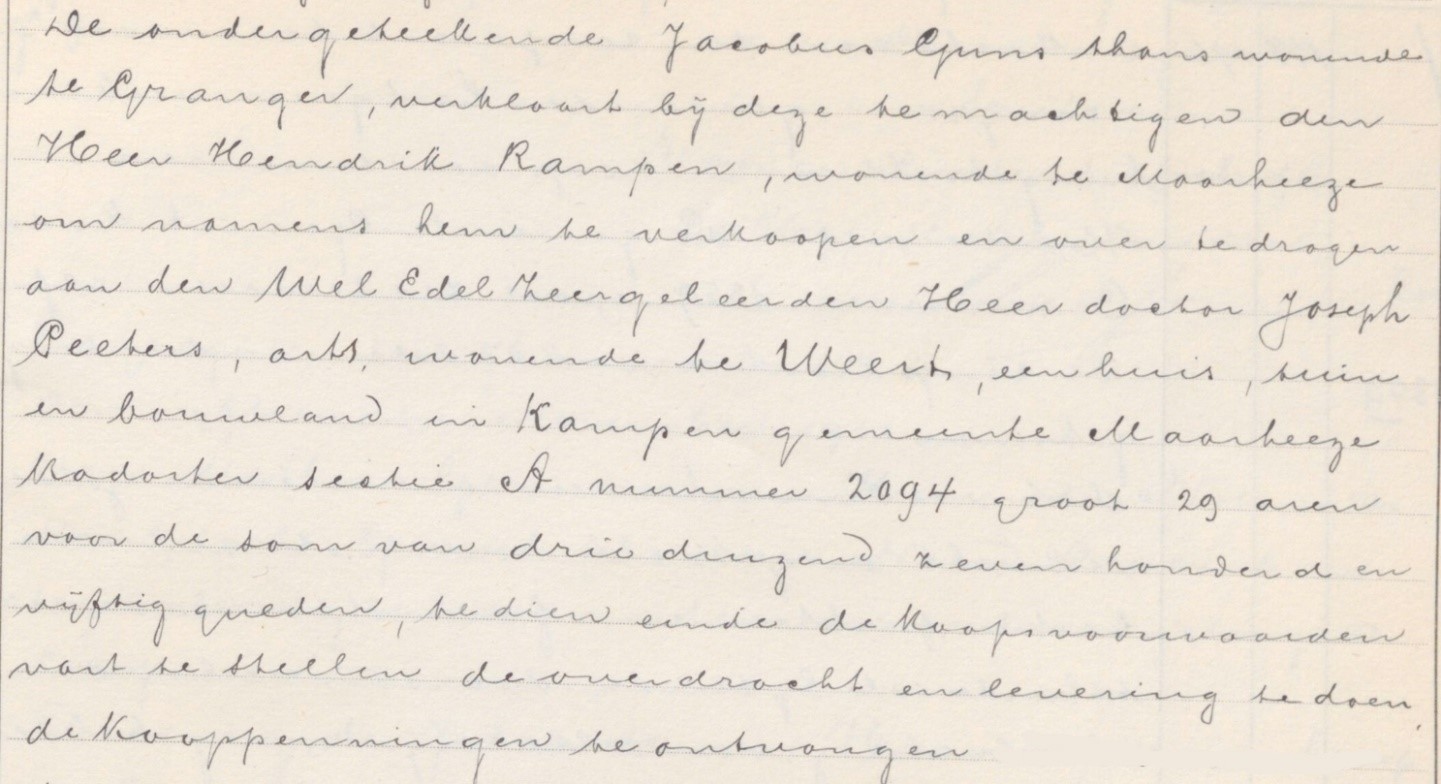 De ondergeteekende Jacobus Guns thans wonende
te Granger, verklaart bij deze te machtigen den
Heer Hendrik Rampen, wonende te Maarheeze
om namens hem te verkoopen en over te dragen
aan den Wel Edel Zeergeleerden Heer doctor Joseph
Peeters, arts, wonende te Weert, een huis, tuin
en bouwland in Kampen gemeente Maarheeze
Kadaster sectie A nummer 2094 groot 29 aren
voor de som van drie duizend zeven honderd en
vijftig gulden, te dien einde de koopsvoorwaarden
vast te stellen de overdracht en levering te doen,
de kooppenningen te ontvangen